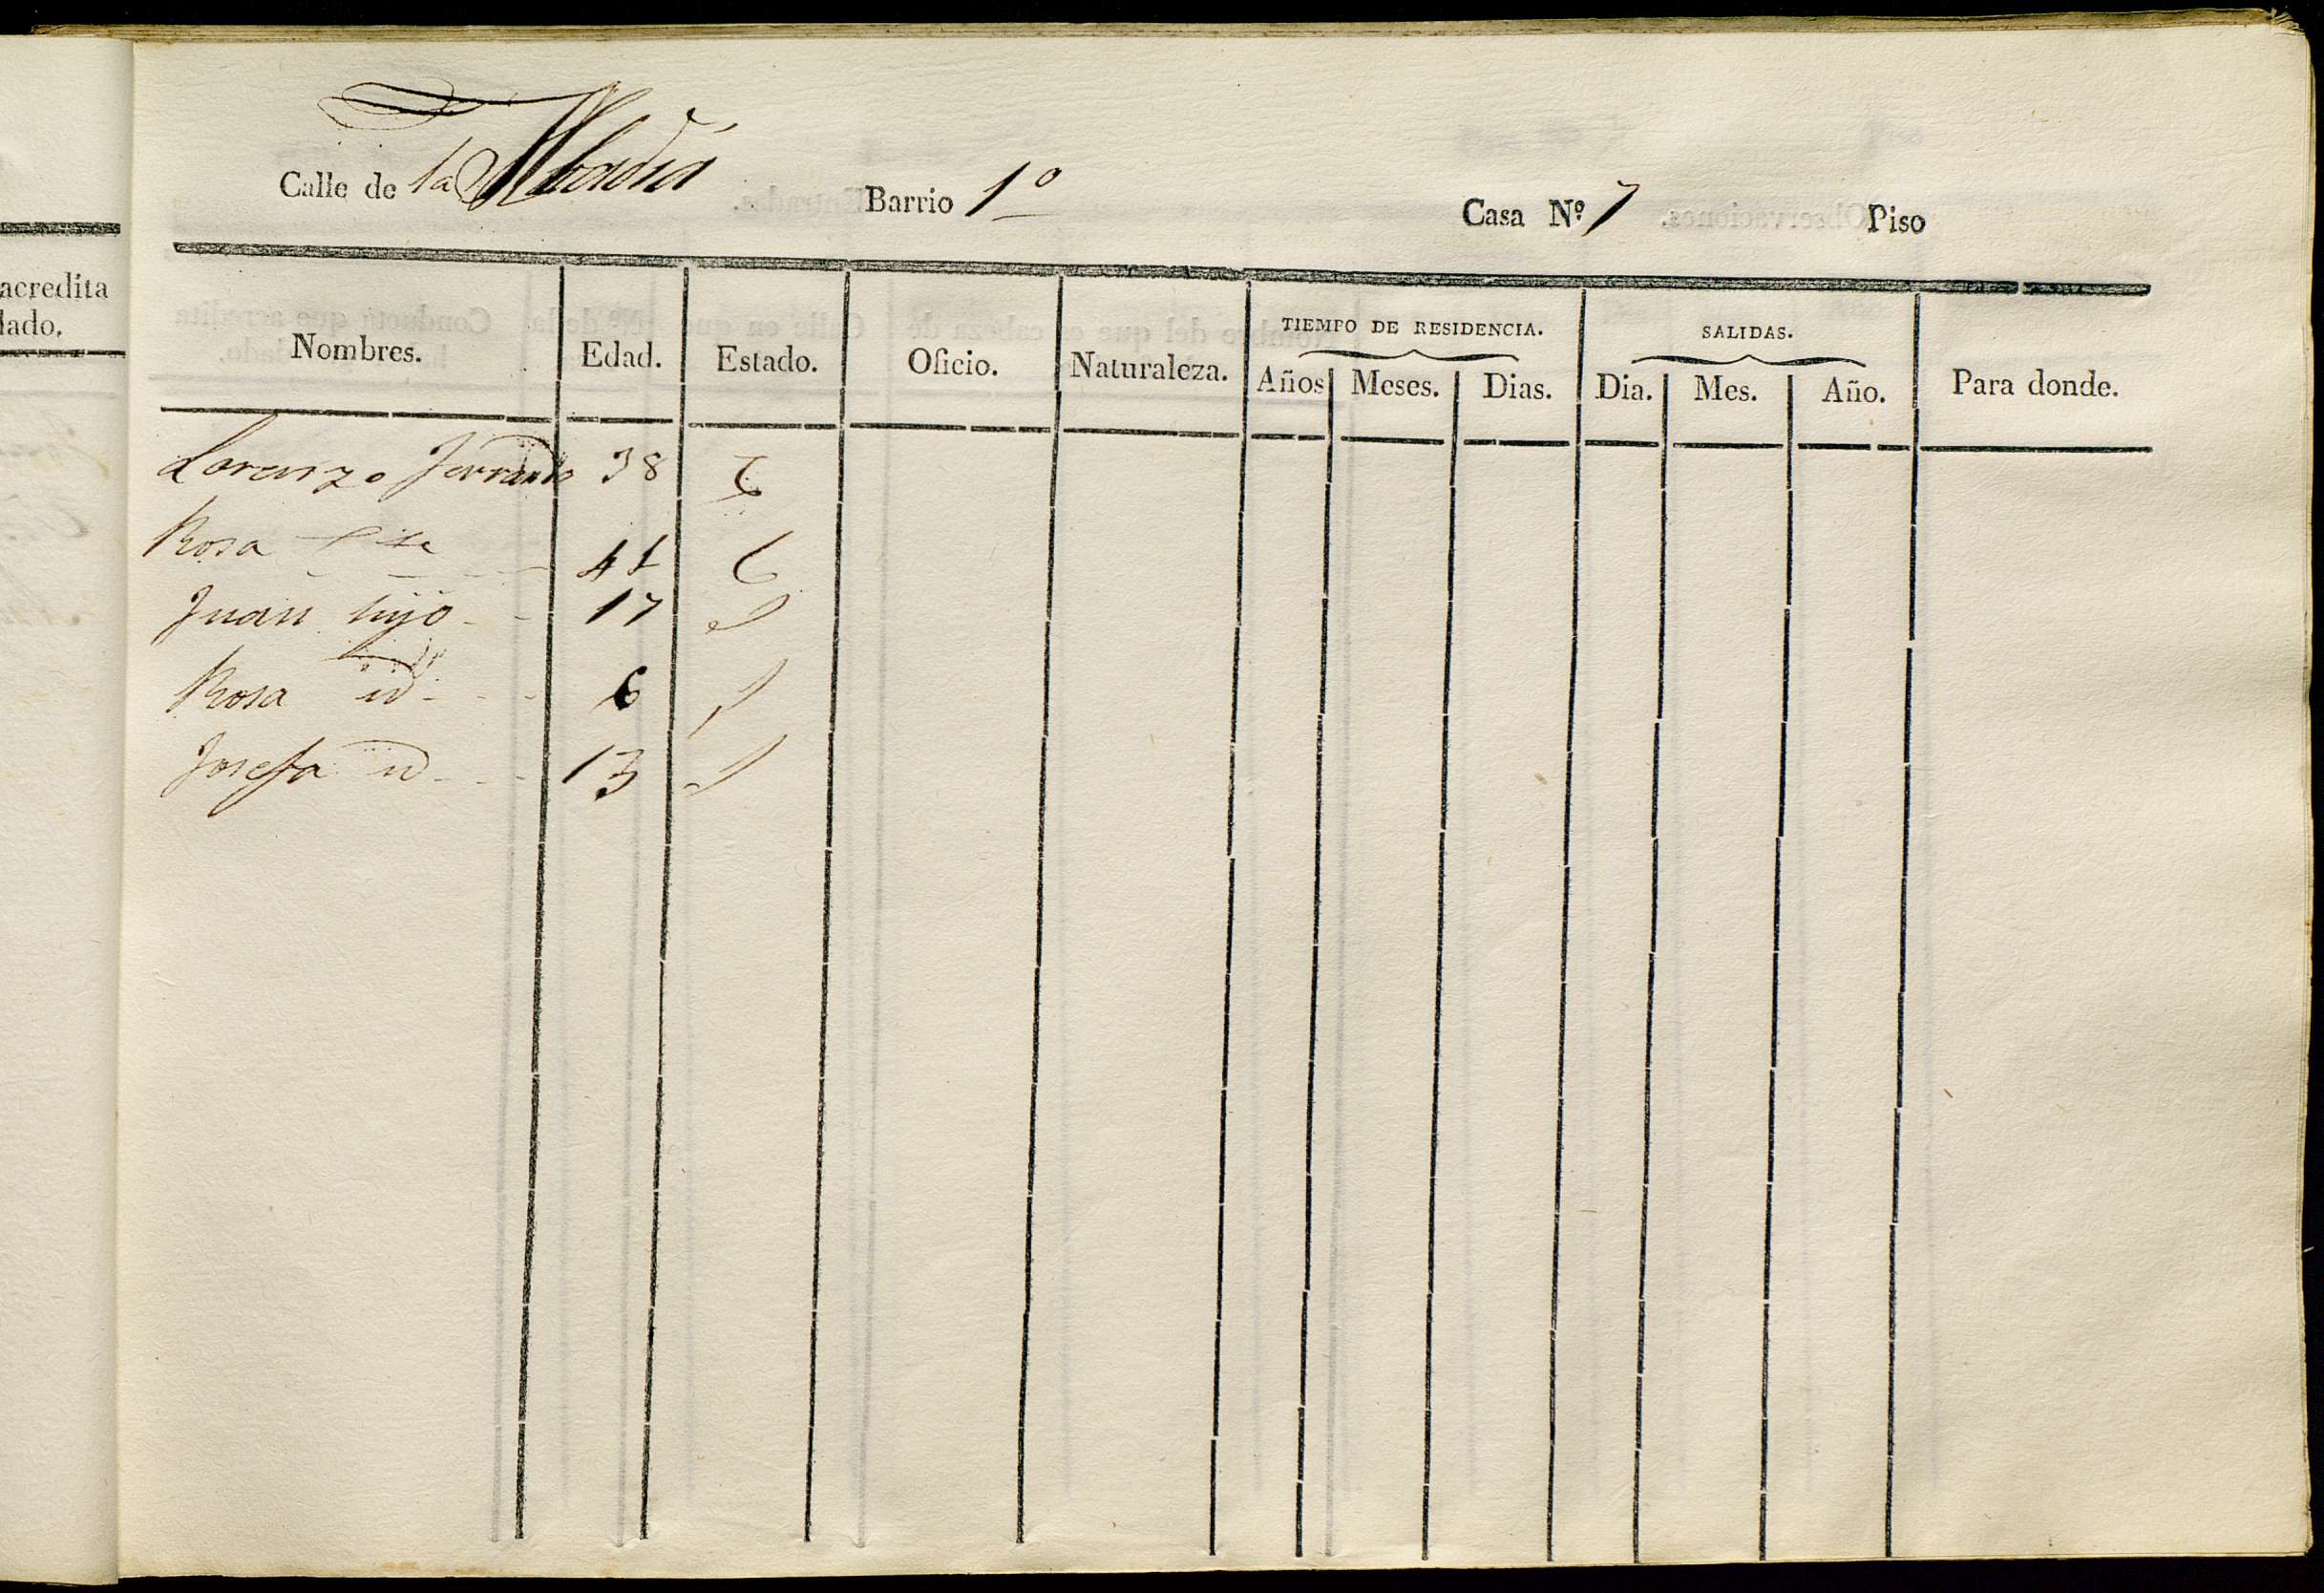 acredita
lado.
Calle de la Abadia Barrio 1º Casa Nº 7 Piso
TIEMPO DE RESIDENCIA. SALIDAS.
Nombres. Edad. Estado. Oficio. Naturaleza. Años Meses. Dias. Dia. Mes. Año. Para donde.
Lorenzo Ferrando 38 C
Rosa 41 C
Juan hijo 17 S
Rosa id 6 S
Josefa id 13 S